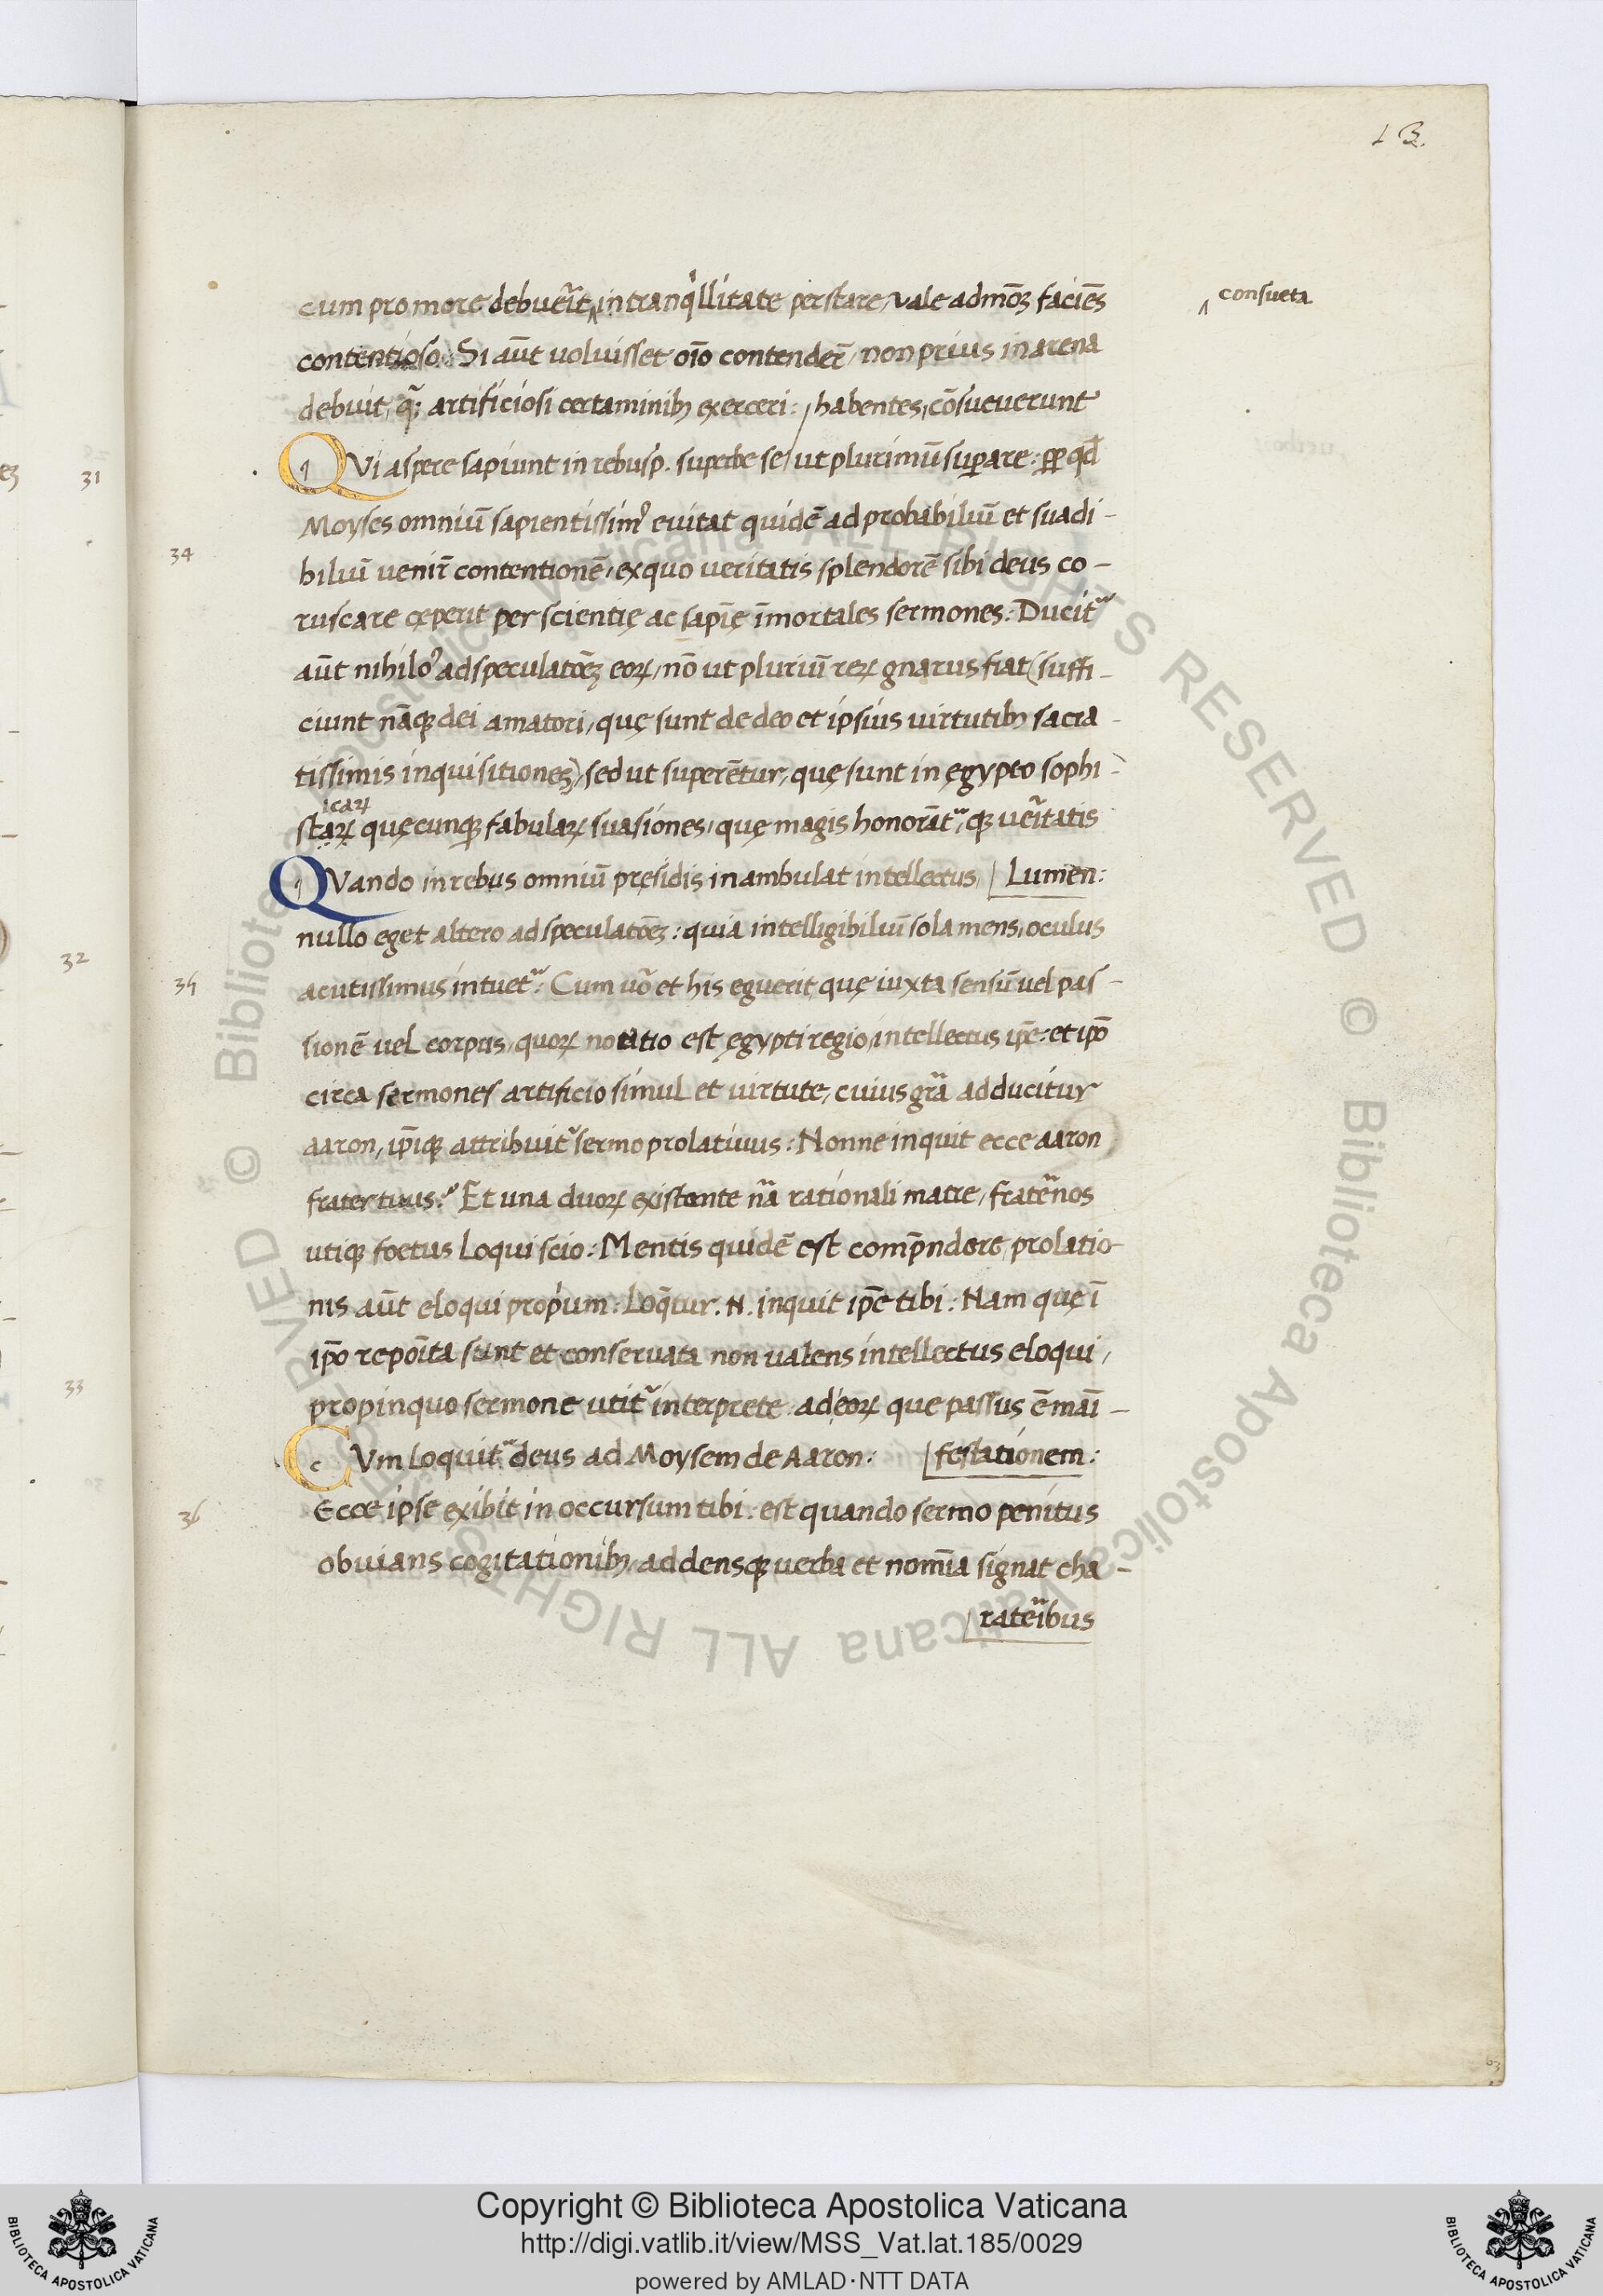 13.
cum pro more debueřit ‸ in tranqͥllitate perstare, vale admoɜ̃ faciẽs
‸ consueta
contentioso: Si aũt uoluisset oĩo contenderẽ, non prius in arena
debuit, q̃; artificiosi certaminibꝫ exerceri: / habentes, cõsueuerunt
31
QVi aspere sapiunt in rebusp. superbe se / ut plurimũ suꝑare: ꝓp qđ
Moyses omniũ sapientissimꝰ euitat quidẽ ad probabiliũ et suadi-
34
biliũ venir̃ contentionẽ, ex quo veritatis splendorẽ sibi deus co-
ruscare cęperit per scientię ac sapĩę ĩmortales sermones: Ducit᷑
aũt nihiloꝰ ad speculatõeꝫ eoꝝ, nõ ut pluriũ reꝝ gnarus fiat (suffi-
ciunt nãqꝫ dei amatori, quę sunt de deo et ipsius virtutibꝫ sacra-
tissimis inquisitiones), sed ut superẽtur, quę sunt in ęgypto sophi-
icaꝝ
staꝝ quęcunqꝫ fabulaꝝ suasiones, quę magis honorãt᷑, qꝫ ueřitatis
QVando in rebus omniũ pręsidis inambulat intellectus, / Lumen:
nullo eget altero ad speculatõeꝫ: quia intelligibiliũ sola mens, oculus
32
35
acutissimus intuet᷑: Cum uõ et his eguerit quę iuxta sensũ vel pas-
sionẽ uel corpus, quoꝝ notatio est ęgypti regio, intellectus ip̃e: et ip̃o
circa sermones artificio simul et virtute, cuius gr̃a adducitur
aaron, ip̃iqꝫ attribuit᷑ sermo prolatiuus: Nonne inquit ecce aaron
frater tuus? Et una duoꝝ existente nã rationali matre, frateřnos
utiqꝫ foetus Loqui scio: Mentis quidẽ est comp̃ndere, prolatio-
nis aũt eloqui propͥum: Loq̃tur .N. inquit ip̃e tibi: Nam quę ĩ
ip̃o repoĩta sunt et conseruata non valens intellectus eloqui,
33
propinquo sermone utit᷑ interprete ad eoꝝ que passus ẽ mãi-
CVm Loquit᷑ deus ad Moysem de Aaron: / festationem:
36
Ecce ipse exibit in occursum tibi: est quando sermo penitus
obuians cogitationibꝫ, addensqꝫ verba et nomĩa signat cha-
/ rateřibus
63
Copyright © Biblioteca Apostolica Vaticana
http://digi.vatlib.it/view/MSS_Vat.lat.185/0029
powered by AMLAD·NTT DATA
BIBLIOTECA APOSTOLICA VATICANA
BIBLIOTECA APOSTOLICA VATICANA
© Biblioteca Apostolica Vaticana ALL RIGHTS RESERVED © Biblioteca Apostolica Vaticana ALL RIGHTS RESERVED